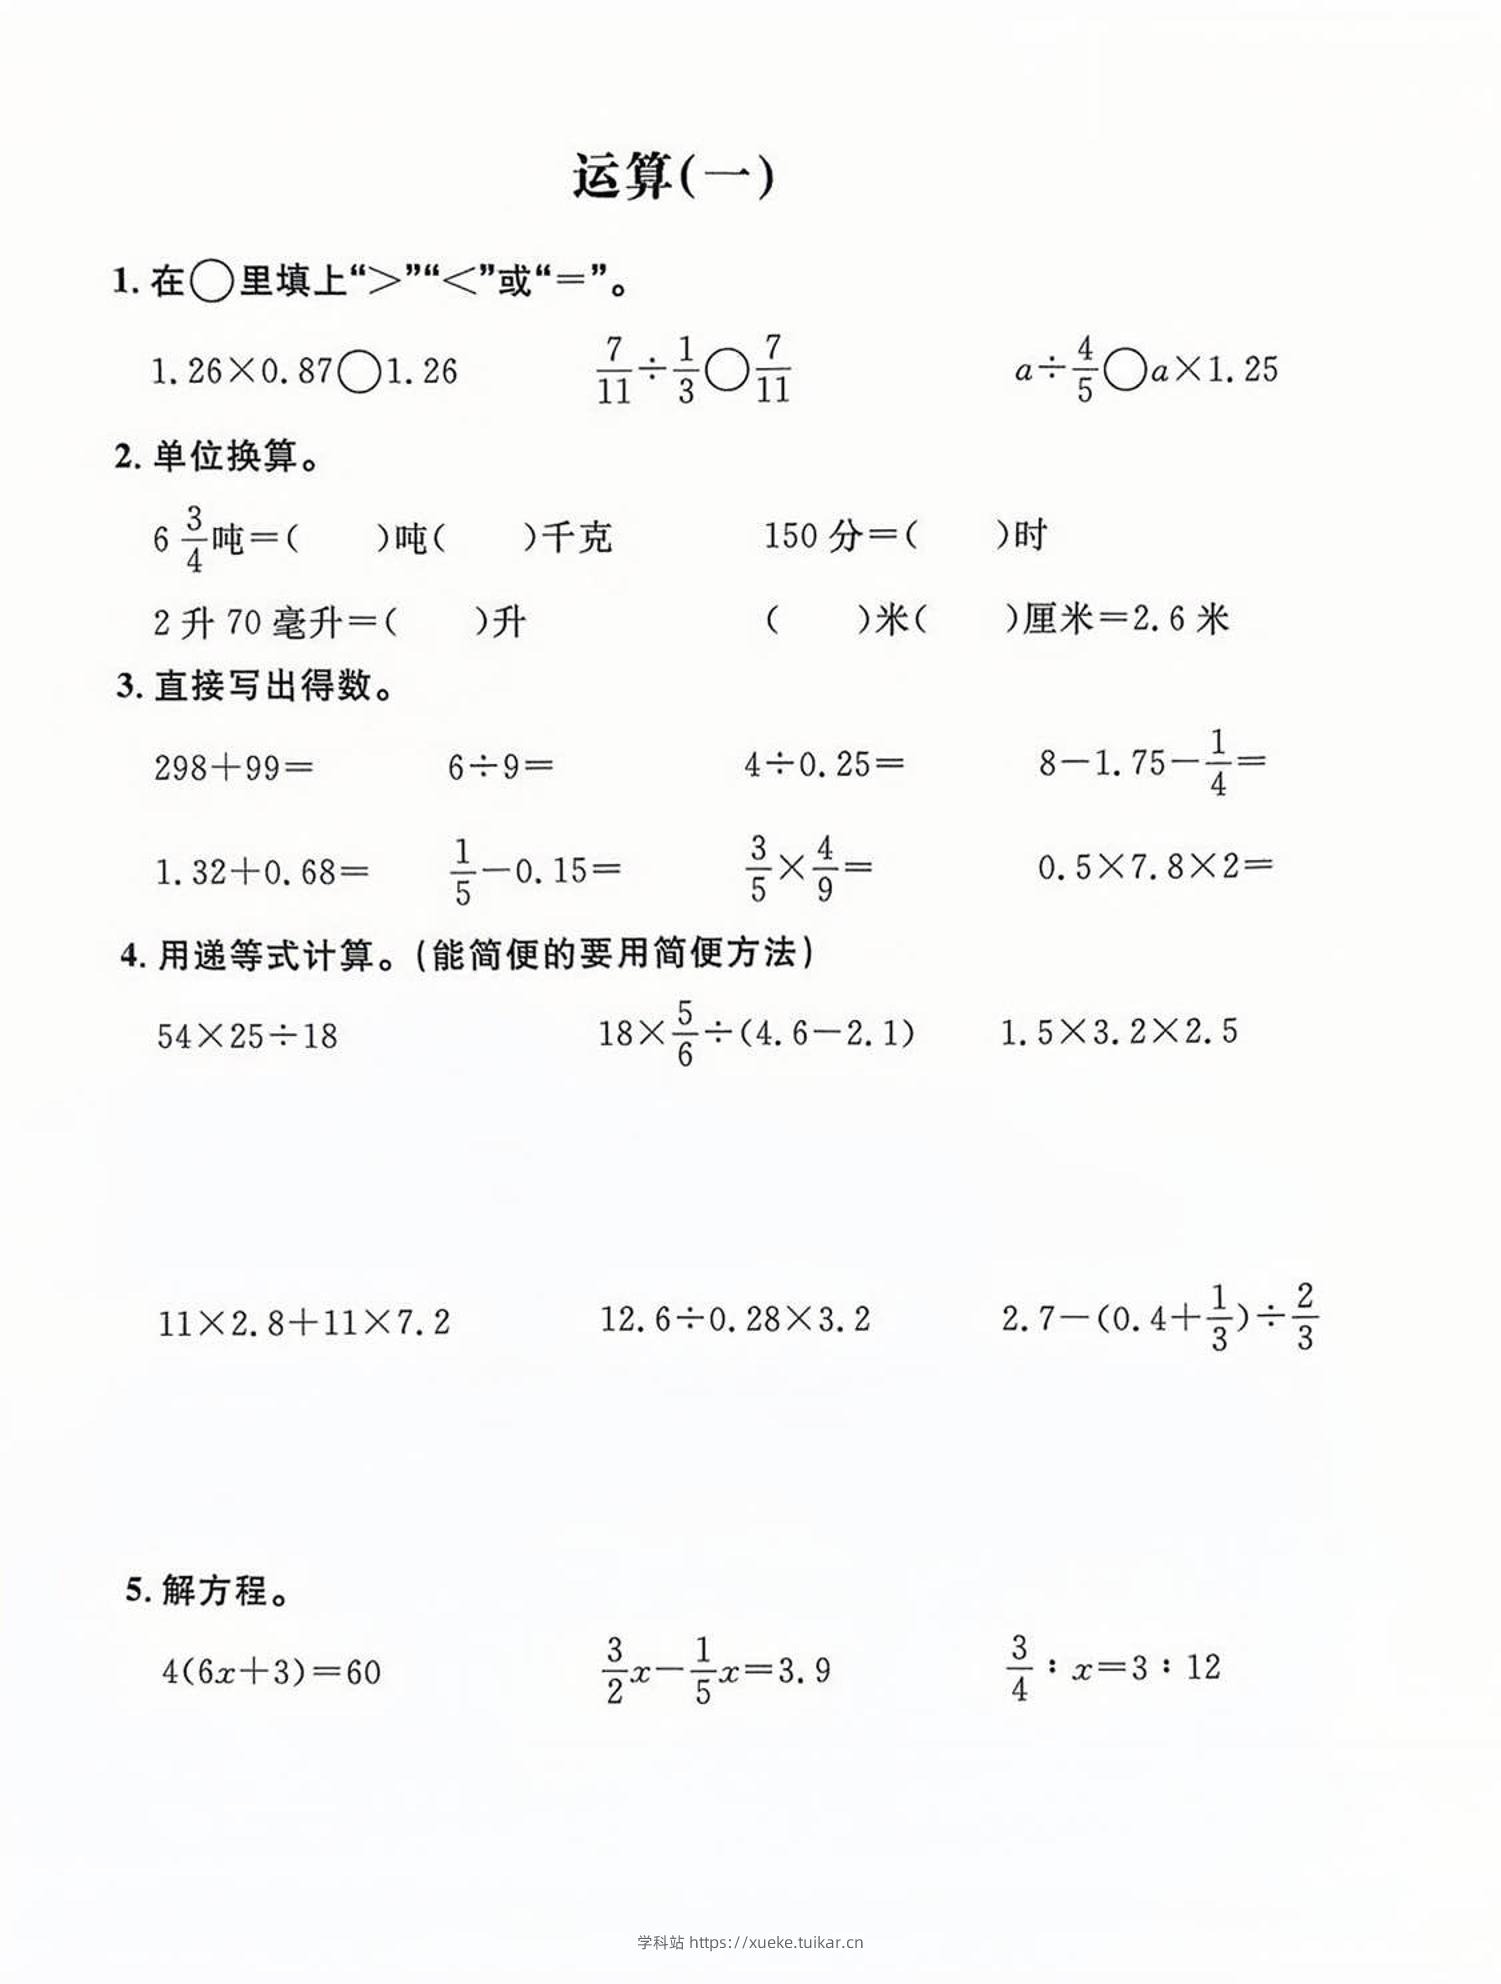 运算(一)
1. 在○里填上“>”“<”或“=”。
1.26×0.87○1.26 7/11÷1/3○7/11 a÷4/5○a×1.25
2. 单位换算。
6 3/4吨=( )吨( )千克 150分=( )时
2升70毫升=( )升 ( )米( )厘米=2.6米
3. 直接写出得数。
298+99= 6÷9= 4÷0.25= 8-1.75-1/4=
1.32+0.68= 1/5-0.15= 3/5×4/9= 0.5×7.8×2=
4. 用递等式计算。(能简便的要用简便方法)
54×25÷18 18×5/6÷(4.6-2.1) 1.5×3.2×2.5
11×2.8+11×7.2 12.6÷0.28×3.2 2.7-(0.4+1/3)÷2/3
5. 解方程。
4(6x+3)=60 3/2x-1/5x=3.9 3/4:x=3:12
学科站 https://xueke.tuikar.cn